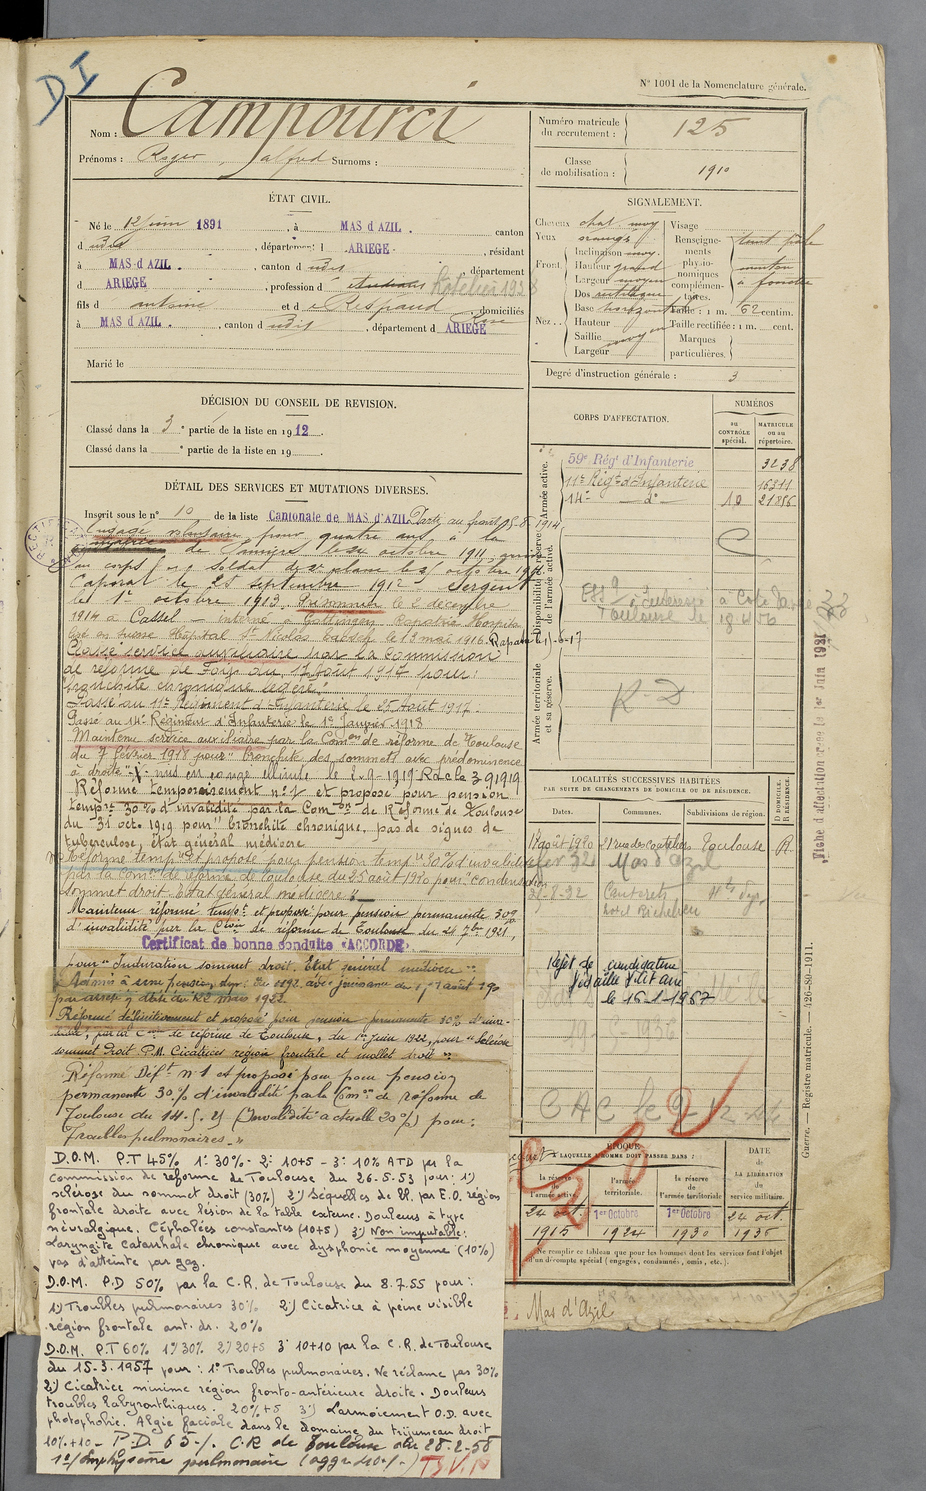 DI
N° 1001 de la Nomenclature générale.
Nom : Campourci
Prénoms : Roger, Alfred Surnoms :
Numéro matricule
du recrutement : 125
Classe
de mobilisation : 1910
ÉTAT CIVIL.
Né le 12 juin 1891, à MAS d AZIL. canton
d udit, département d ARIEGE, résidant
à MAS d AZIL., canton d udit, département
d ARIEGE, profession d étudiant Hotelier 1938
fils d antoine et d Respaud Rose domiciliés
à MAS d AZIL., canton d udit, département d ARIEGE
Marié le
SIGNALEMENT.
Cheveux chat. moy
Yeux oranges
Front
Inclinaison moy.
Hauteur grand
Largeur moyen
Nez
Dos rectiligne
Base horizontale
Hauteur
Saillie moyen
Largeur
Visage
Renseigne-
ments
physio-
nomiques
complémen-
taires.
teint pâle
menton
à fossette
Taille : 1 m. 62 centim.
Taille rectifiée : 1 m. cent.
Marques
particulières.
Degré d'instruction générale : 3
DÉCISION DU CONSEIL DE REVISION.
Classé dans la 3e partie de la liste en 1912.
Classé dans la e partie de la liste en 19
DÉTAIL DES SERVICES ET MUTATIONS DIVERSES.
Inscrit sous le n° 10 de la liste Cantonale de MAS d'AZIL Parti au front 1914
Engagé volontaire pour quatre ans à la
de Pamiers le octobre 1911, arrivé
au corps soldat de 2e classe le octobre 1911.
Caporal le 25 septembre 1912 Sergent
le 1er octobre 1913. Prisonnier le 2 décembre
1914 à Cassel — interné à Göttingen Rapatrié Hospita
lisé en Suisse Hôpital St Nicolas le 13 mai 1916. Rapatrié -6-17
Classé service auxiliaire par la Commission
de réforme de Foix du 17 août 1917 pour :
bronchite chronique légère.
Passé au 11e Régiment d'Infanterie le 25 Août 1917.
Passé au 14e Régiment d'Infanterie le 1er Janvier 1918
Maintenu service auxiliaire par la Comon de réforme de Toulouse
du 7 février 1918 pour "bronchite des sommets avec prédominence
à droite" mis en congé illimité le 2-9-1919 Rdc le 3 9 1919
Réformé temporairement n° 1 et proposé pour pension
tempre 30 % d'invalidité par la Comon de Réforme de Toulouse
du 31 octe 1919 pour "bronchite chronique, pas de signes de
tuberculose, état général médiocre"
Réformé tempt et proposé pour pension tempre 30% d'invalidité
par la comon de réforme de Toulouse du 25 août 1920 pour "condensation
sommet droit. Etat général médiocre"
Maintenu réformé tempt et proposé pour pension permanente 30%
d'invalidité par la Con de réforme de Toulouse du 24 7bre 1921,
Certificat de bonne conduite «ACCORDÉ»
pour "Induration sommet droit. Etat général médiocre"
Admis à une pension, avec jouissance du août
par arrêté daté du 22 mars 1922
Réformé définitivement et proposé pour pension permanente 30% d'inva-
lidité, par la Con de réforme de Toulouse, du 1er Juin 1922, pour "Sclérose
sommet droit. P.M. Cicatrices région frontale et mollet droit"
Réformé Déft n° 1 et proposé pour pour pension
permanente 30 % d'invalidité par la Comon de réforme de
Toulouse du 14. 5. 25 (Invalidité actuelle 20 %) pour :
"Troubles pulmonaires."
D.O.M. P.T 45% 1: 30% - 2: 10+5 - 3: 10% ATD par la
commission de réforme de Toulouse du 26-5-53 pour : 1)
sclérose du sommet droit (30%) 2) Séquelles de bl. par E.O. région
frontale droite avec lésion de la table externe. Douleurs à type
névralgique. Céphalées constantes (10+5) 3) Non imputable :
Laryngite catarrhale chronique avec dysphonie moyenne (10%)
pas d'atteinte par gaz.
D.O.M. P.D 50% par la C.R. de Toulouse du 8.7.55 pour :
1) Troubles pulmonaires 30% 2) Cicatrice à peine visible
région frontale ant. dr. 20%
D.O.M. P.T 60% 1: 30% 2: 20+5 3: 10+10 par la C.R. de Toulouse
du 15-3-1957 pour : 1° Troubles pulmonaires. Ne réclame pas 30%
2) Cicatrice minime région fronto-antérieure droite. Douleurs
troubles labyrinthiques. 20%+5 3) Larmoiement O.D. avec
photophobie. Algie faciale dans le domaine du trijumeau droit
10%+10 - P.D. 65 % C.R de Toulouse du 28-2-58
1°/ Emphysème pulmonaire (aggr. 40%)
CORPS D'AFFECTATION.
NUMÉROS
au
CONTRÔLE
spécial.
MATRICULE
ou au
répertoire.
Armée active.
59e Régt d'Infanterie 3238
11e Régt d'Infanterie 15311
14e — d° — 10 21886
Disponibilité et réserve
de l'armée active.
Toulouse le 18-4-56
Armée territoriale
et sa réserve.
R-D
Fiche d'affectation créée le 1er Juin 1921
LOCALITÉS SUCCESSIVES HABITÉES
PAR SUITE DE CHANGEMENTS DE DOMICILE OU DE RÉSIDENCE.
Dates.
Communes.
Subdivisions de région.
D DOMICILE.
R RÉSIDENCE.
août 1920 Toulouse R
fév 32 Mas d'azil
2-8-32 Cauterets Htes Pyr.
hotel Richelieu
Rejet de candidature
Médaille Militaire
le 16-1-1957
19-5-1936
CAC le 9-12-44
ÉPOQUE
À LAQUELLE L'HOMME DOIT PASSER DANS :
la réserve
de
l'armée active.
l'armée
territoriale.
la réserve
de
l'armée territoriale
DATE
de
LA LIBÉRATION
du
service militaire.
24 oct. 1er Octobre 1er Octobre 24 oct.
1915 1924 1930 1936
Ne remplir ce tableau que pour les hommes dont les services font l'objet
d'un décompte spécial (engagés, condamnés, omis, etc.).
Mas d'Azil
Guerre. — Registre matricule. — 426-80-1911.